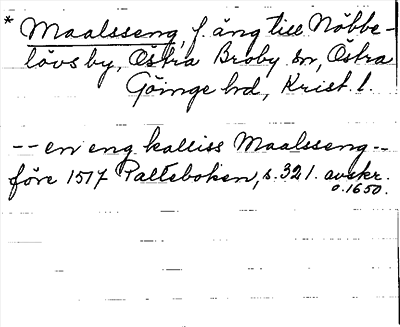 * Maalsseng, f. äng till Nöbbe-
lövs by, Östra Broby sn, Östra
Göinge hd, Krist. l.
-- en eng kalliss Maalsseng --
före 1517 Palteboken, s. 321. avskr.
o. 1650.